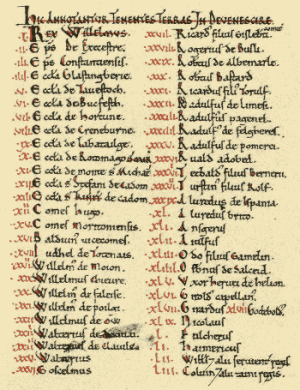 HIC ANNOTANTUR TENENTES TERRAS IN DEVENESCIRE
.I. REX Willelmus.
.II. Eps de Execestre.
.III. Eps Constantiensis.
.IIII. Eccla Glastingberie.
.V. Eccla de Tavestoch.
.VI. Eccla de Bucfesth.
.VII. Eccla de Hortune.
.VIII. Eccla de Creneburne.
.IX. Eccla de Labatailge.
.X. Eccla de Rotomago
.XI. Eccla de monte S Michael
.XII. Eccla S Stefani de Cadom
.XIII. Eccla S de cadom
.XIIII. Comes hugo.
.XV. Comes moritoniensis.
.XVI. Balduin vicecomes.
.XVII. Iudhel de Totenais.
Willelm de moion.
Willelmus chievre.
.XX. Willelm de faleise.
.XXI. Willelm de poilgi
.XXII. Willelmus de ow
.XXIII. Walterius de
Walterius de Clavile
.XXV. Walterius
.XXVI. Goscelmus
.XXVII. Ricard filius gisleberti
.XXVIII. Rogerius de Busli.
.XXIX. Robtus de Albemarle.
.XXX. Robtus Bastard
Ricardus fili Torulf.
Radulfus de limesi.
Radulfus pagenel.
Radulf de felgheres
.XXXV. Radulfus de pomerei
Ruald adobed.
Tetbald filius Berneri.
Turstin filius Rolf.
Aluredus de ispania
.XL. Aluredus brito.
.XLI. Ansgerus
.XLII. Aiulfus
.XLIII. Odo filius Gamelin.
.XLIIII. Osbnus de Salceid.
.XLV. Uxor hervei de helion
.XLVI. Girold capellan.
.XLVII. Girardus
.XLVIII. Godebold.
.XLIX. Nicolaus
.L. Fulcherus
.LI. Haimericus
.LII. Willl alii servientes regis
.LIII. Colvin alii taini regis.